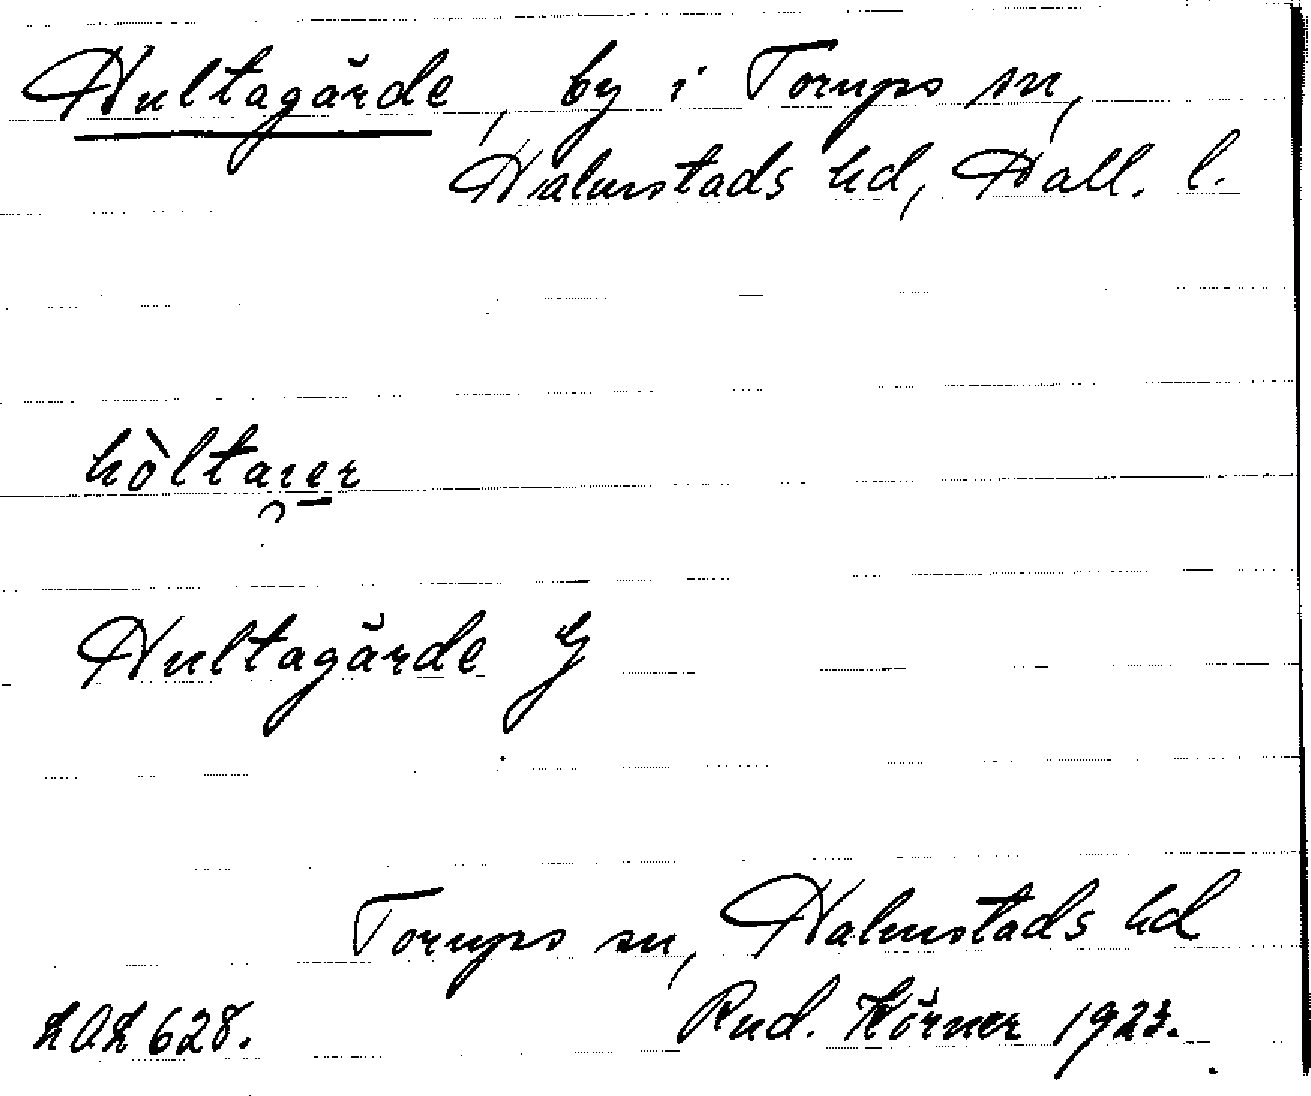 Hultagärde, by i Torups sn,
Halmstads hd, Hall. l.
hòltaɪer
Hultagärde G
Torups sn, Halmstads hd
LAL 628. Rud. Körner 1923.